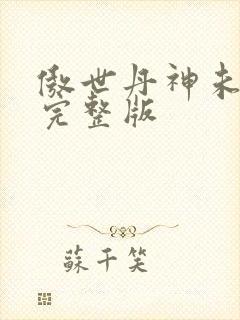 傲世丹神未
完整版
蘇千笑